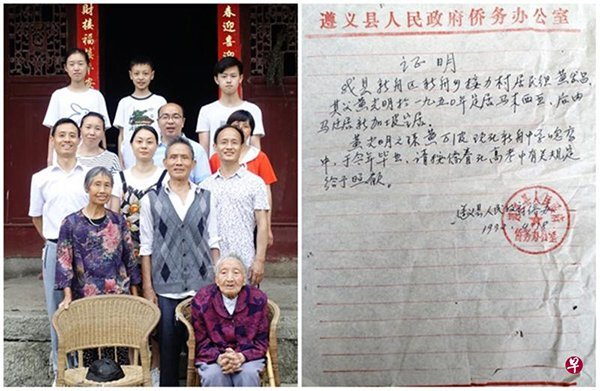 財接福
春迎喜
遵义县人民政府侨务办公室
证明
我县新舟区新舟乡接力村居民组黄
其父黄光明于一九五〇年定居马来西亚,后由
马迁居新加坡定居。
黄光明之孫黄万波现在新舟中学高
中,于今年毕业,请按侨眷在高考中有关规定
给予照顾。
遵义县人民政府侨务
侨务办公室
早